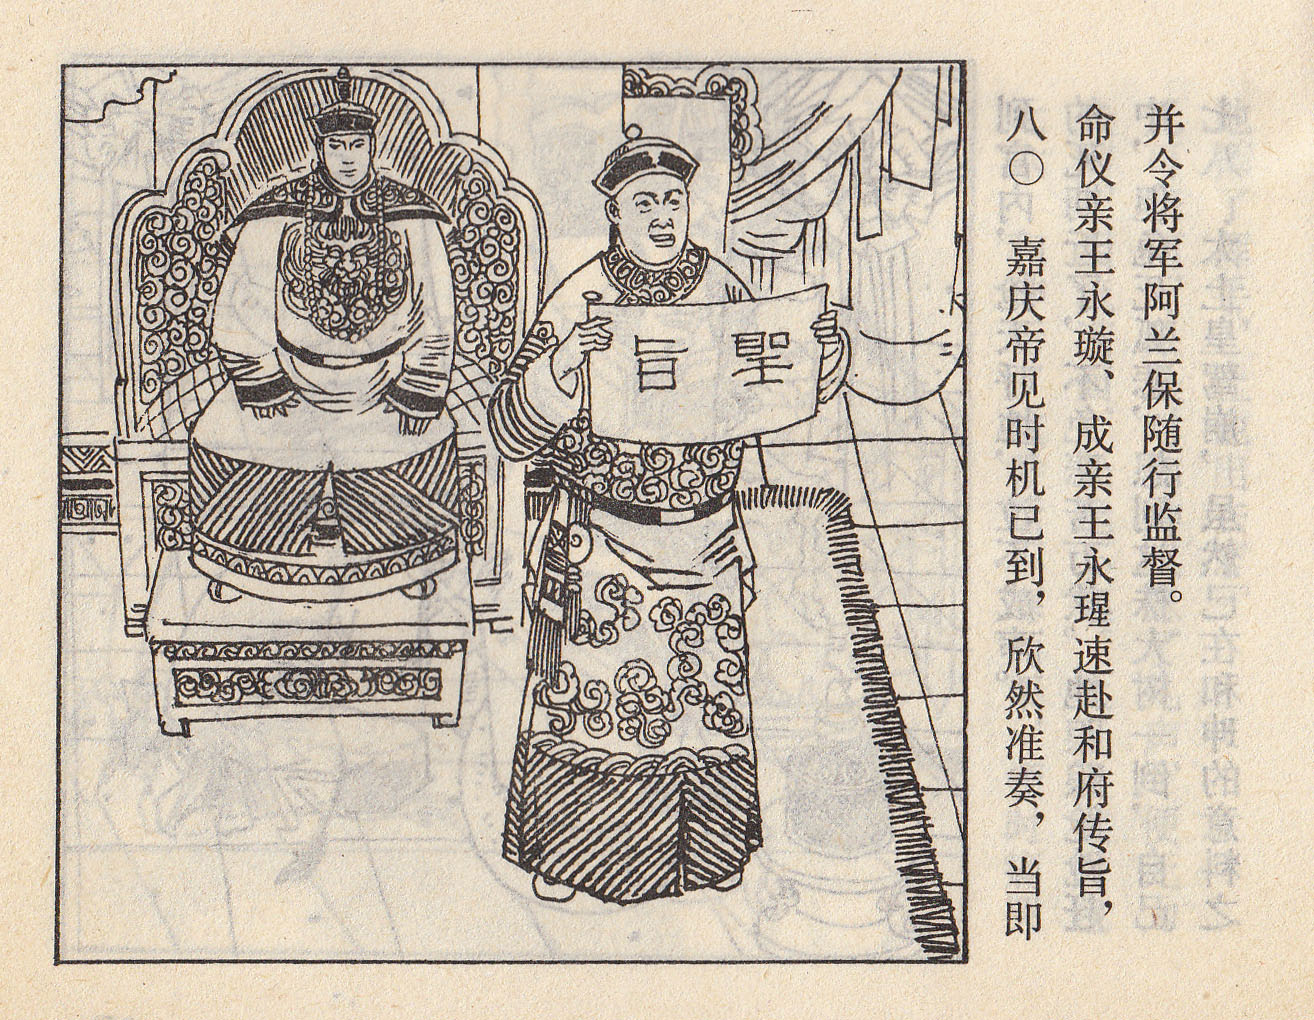 八〇 嘉庆帝见时机已到，欣然准奏，当即
命仪亲王永璇、成亲王永瑆速赴和府传旨，
并令将军阿兰保随行监督。
聖旨